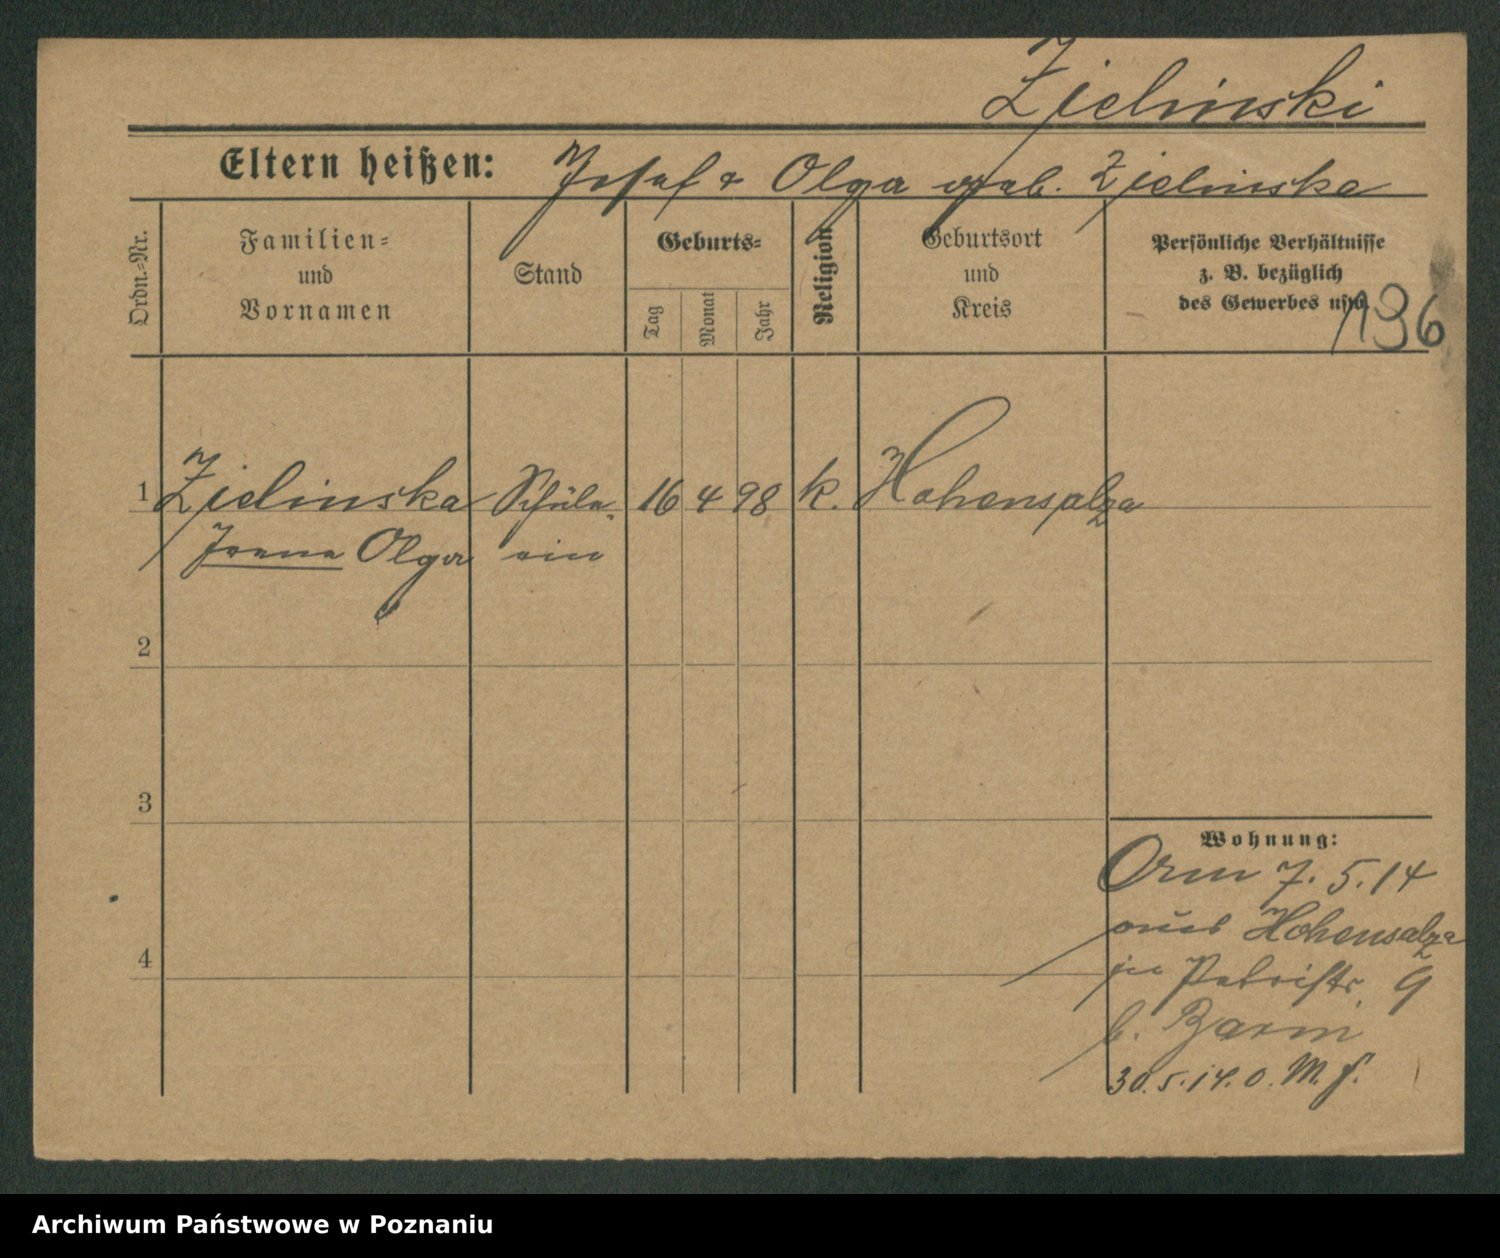 Zielinski
Eltern heißen: Josef & Olga geb. Zielinska
Ordn.-Nr.
Familien-
und
Vornamen
Stand
Geburts-
Tag
Monat
Jahr
Religion
Geburtsort
und
Kreis
Persönliche Verhältnisse
z. B. bezüglich
des Gewerbes usw.
196
1 Zielinska Schüle- 16 4 98 k. Hohensalza
Irene Olga rin
2
3
4
Wohnung:
7. 5. 14
aus Hohensalza
in Petristr. 9
b.
30.5.14. o. M. f.
Archiwum Państwowe w Poznaniu